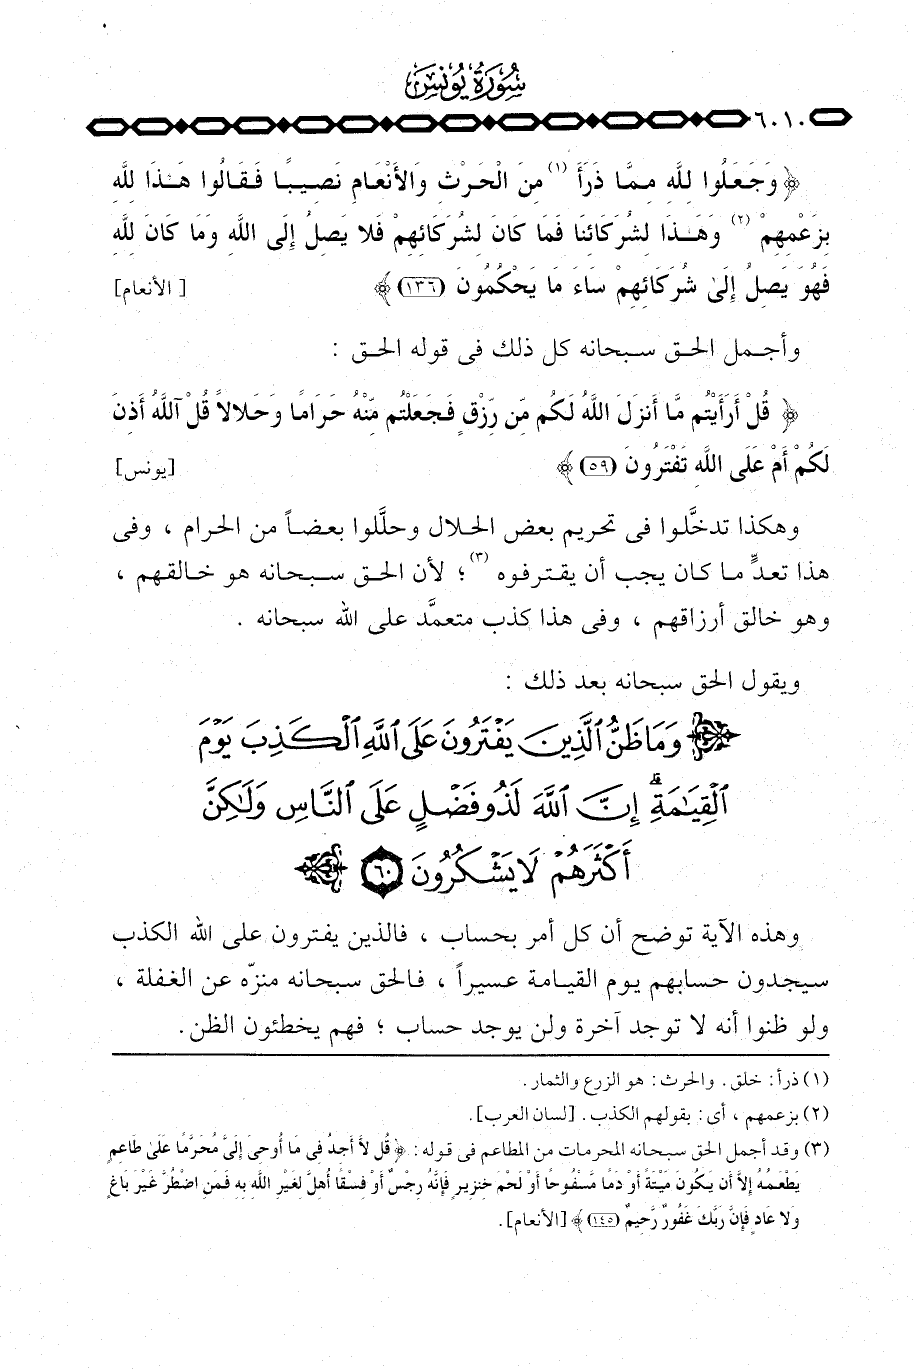 سُورَةُ يُونُسَ
٦٠١٠
﴿ وَجَعَلُوا لِلَّهِ مِمَّا ذَرَأَ (١) مِنَ الْحَرْثِ وَالأَنْعَامِ نَصِيبًا فَقَالُوا هَـٰذَا لِلَّهِ
بِزَعْمِهِمْ (٢) وَهَـٰذَا لِشُرَكَائِنَا فَمَا كَانَ لِشُرَكَائِهِمْ فَلا يَصِلُ إِلَى اللَّهِ وَمَا كَانَ لِلَّهِ
فَهُوَ يَصِلُ إِلَىٰ شُرَكَائِهِمْ سَاءَ مَا يَحْكُمُونَ (١٣٦) ﴾ [ الأنعام]
وأجمل الحق سبحانه كل ذلك فى قوله الحق :
﴿ قُلْ أَرَأَيْتُم مَّا أَنزَلَ اللَّهُ لَكُم مِّن رِّزْقٍ فَجَعَلْتُم مِّنْهُ حَرَامًا وَحَلالاً قُلْ آللَّهُ أَذِنَ
لَكُمْ أَمْ عَلَى اللَّهِ تَفْتَرُونَ (٥٩) ﴾ [يونس]
وهكذا تدخَّلوا فى تحريم بعض الحلال وحلَّلوا بعضاً من الحرام ، وفى
هذا تعدٍّ ما كان يجب أن يقترفوه (٣) ؛ لأن الحق سبحانه هو خالقهم ،
وهو خالق أرزاقهم ، وفى هذا كذب متعمَّد على الله سبحانه .
ويقول الحق سبحانه بعد ذلك :
﴿ وَمَا ظَنُّ ٱلَّذِينَ يَفْتَرُونَ عَلَى ٱللَّهِ ٱلْكَذِبَ يَوْمَ
ٱلْقِيَـٰمَةِ ۗ إِنَّ ٱللَّهَ لَذُو فَضْلٍ عَلَى ٱلنَّاسِ وَلَـٰكِنَّ
أَكْثَرَهُمْ لَا يَشْكُرُونَ ٦٠ ﴾
وهذه الآية توضح أن كل أمر بحساب ، فالذين يفترون على الله الكذب
سيجدون حسابهم يوم القيامة عسيراً ، فالحق سبحانه منزّه عن الغفلة ،
ولو ظنوا أنه لا توجد آخرة ولن يوجد حساب ؛ فهم يخطئون الظن .
(١) ذرأ : خلق . والحرث : هو الزرع والثمار .
(٢) بزعمهم ، أى : بقولهم الكذب . [لسان العرب] .
(٣) وقد أجمل الحق سبحانه المحرمات من المطاعم فى قوله : ﴿ قُل لاَّ أَجِدُ فِي مَا أُوحِيَ إِلَيَّ مُحَرَّمًا عَلَىٰ طَاعِمٍ
يَطْعَمُهُ إِلاَّ أَن يَكُونَ مَيْتَةً أَوْ دَمًا مَّسْفُوحًا أَوْ لَحْمَ خِنزِيرٍ فَإِنَّهُ رِجْسٌ أَوْ فِسْقًا أُهِلَّ لِغَيْرِ اللَّهِ بِهِ فَمَنِ اضْطُرَّ غَيْرَ بَاغٍ
وَلا عَادٍ فَإِنَّ رَبَّكَ غَفُورٌ رَّحِيمٌ (١٤٥) ﴾ [الأنعام] .